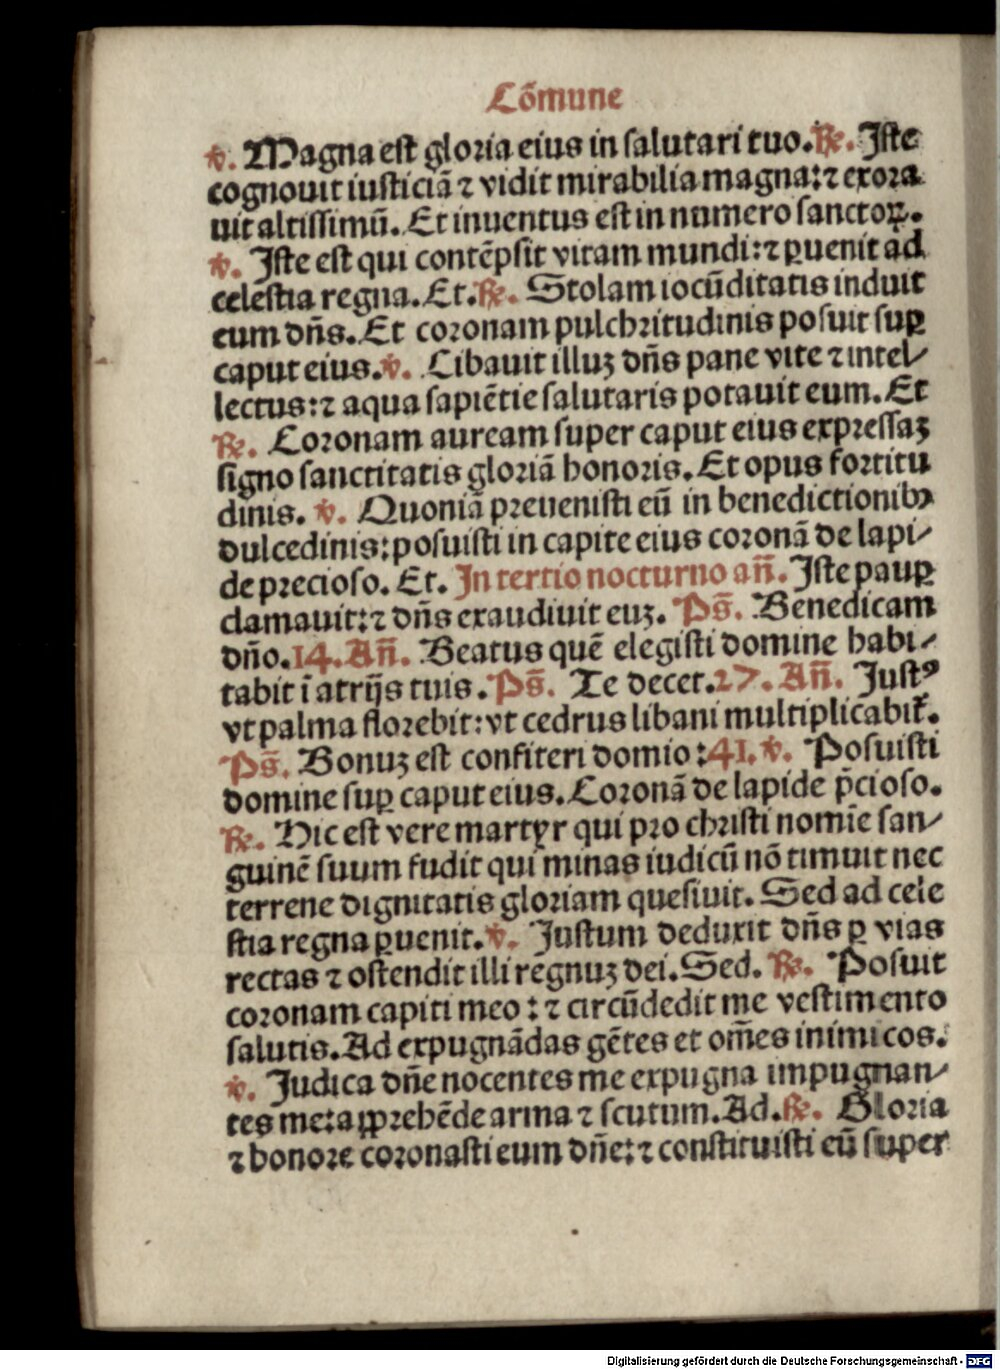 Cōmune
℣. Magna est gloria eius in salutari tuo. ℟. Iste
cognouit iusticiā ⁊ vidit mirabilia magna: ⁊ exora
uit altissimū. Et inuentus est in numero sanctoꝝ.
℣. Iste est qui contēpsit vitam mundi: ⁊ ꝑuenit ad
celestia regna. Et. ℟. Stolam iocūditatis induit
eum dn̄s. Et coronam pulchritudinis posuit suꝑ
caput eius. ℣. Cibauit illuꝫ dn̄s pane vite ⁊ intel/
lectus: ⁊ aqua sapiētie salutaris potauit eum. Et
℟. Coronam auream super caput eius expressaꝫ
signo sanctitatis gloriā honoris. Et opus fortitu
dinis. ℣. Quoniā preuenisti eū in benedictionibꝰ
dulcedinis: posuisti in capite eius coronā de lapi/
de precioso. Et. In tertio nocturno an̄. Iste pauꝑ
clamauit: ⁊ dn̄s exaudiuit euꝫ. Ps̄. Benedicam
dn̄o. 14. An̄. Beatus quē elegisti domine habi/
tabit ī atrijs tuis. Ps̄. Te decet. 27. An̄. Iustꝰ
vt palma florebit: vt cedrus libani multiplicabit᷑.
Ps̄. Bonuꝫ est confiteri domio: 41. ℣. Posuisti
domine suꝑ caput eius. Coronā de lapide p̄cioso.
℟. Hic est vere martyr qui pro christi nomīe san/
guinē suum fudit qui minas iudicū nō timuit nec
terrene dignitatis gloriam quesiuit. Sed ad cele
stia regna ꝑuenit. ℣. Iustum deduxit dn̄s ꝑ vias
rectas ⁊ ostendit illi regnuꝫ dei. Sed. ℟. Posuit
coronam capiti meo: ⁊ circūdedit me vestimento
salutis. Ad expugnādas gētes et om̄es inimicos.
℣. Iudica dn̄e nocentes me expugna impugnan/
tes me: aꝓprehēde arma ⁊ scutum. Ad. ℟. Gloria
⁊ honore coronasti eum dn̄e: ⁊ constituisti eū super
Digitalisierung gefördert durch die Deutsche Forschungsgemeinschaft - DFG